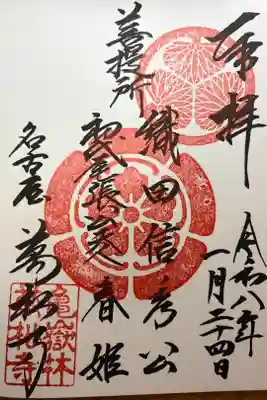 奉拝
令和八年
一月二十四日
菩提所
織田信秀公
初代尾張 春姫
名古屋 萬松寺
龜嶽林
萬松寺